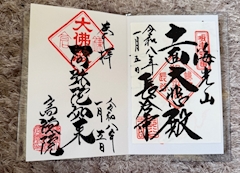 海光山
十一面大悲殿
長谷寺
令和八年
一月五日
奉拝
大佛
阿弥陀如来
令和八年
一月五日
高徳院